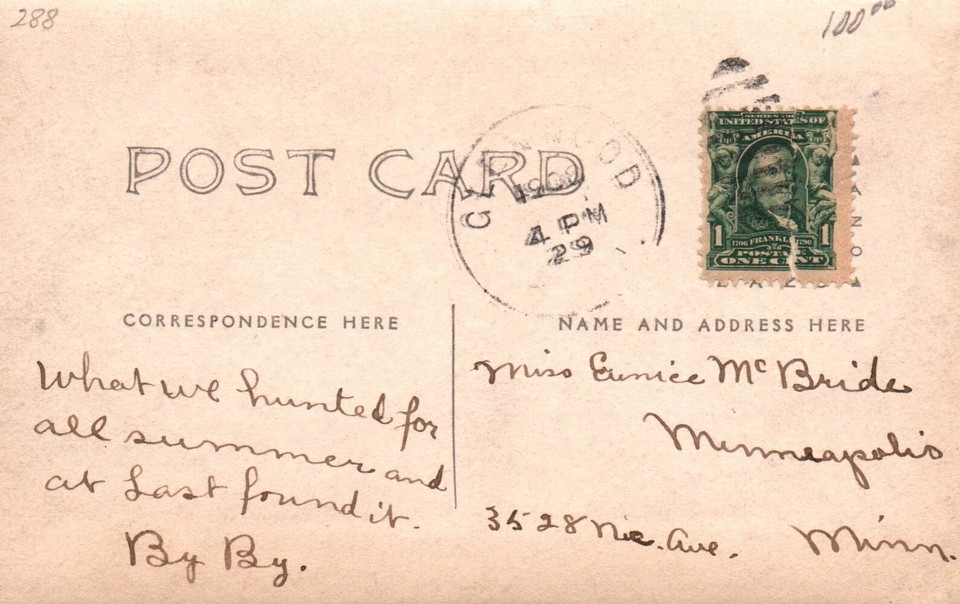 288
100⁰⁰
POST CARD
GLENWOOD
1908
4 PM
29
SERIES 1902
UNITED STATES OF
AMERICA
1 1706 FRANKLIN 1790 1
POSTAGE
ONE CENT
CORRESPONDENCE HERE
NAME AND ADDRESS HERE
What we hunted for
all summer and
at Last found it.
By By.
Miss Eunice McBride
Minneapolis
3528 Nic. Ave. Minn.